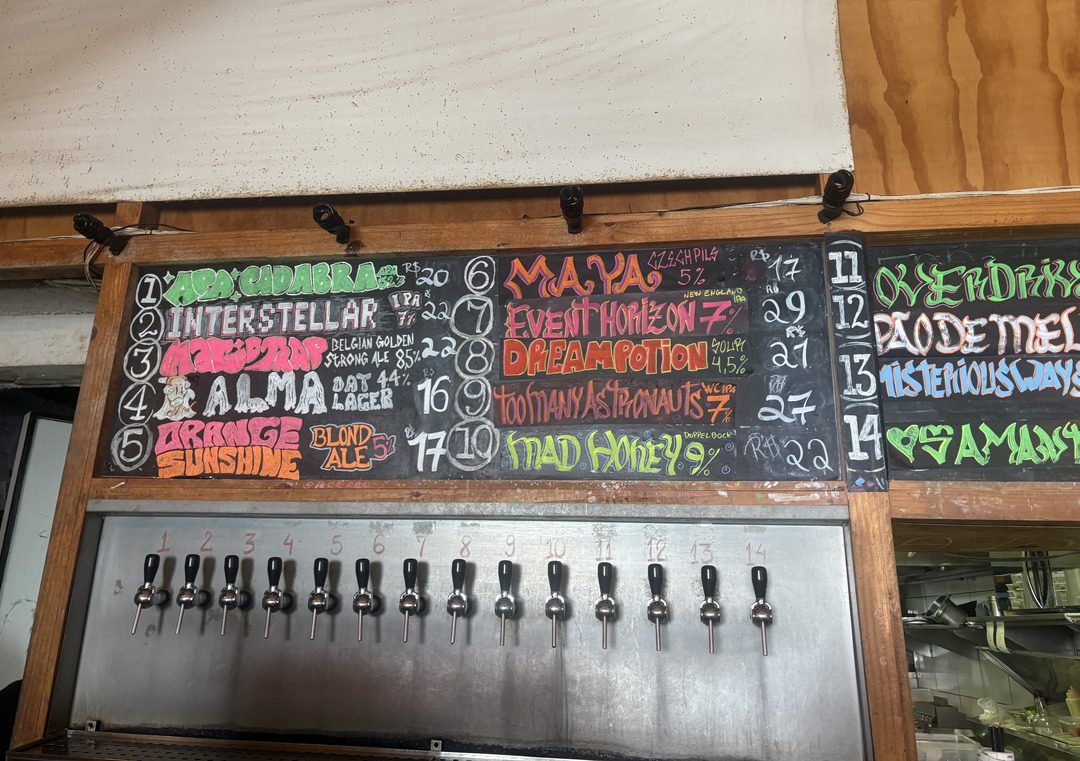 1 APA CADABRA APA R$ 20
2 INTERSTELLAR IPA 7% 22
3 MAGICTRAP BELGIAN GOLDEN STRONG ALE 8,5% 22
4 ALMA OAT LAGER 4,4% 16
5 ORANGE SUNSHINE BLOND ALE 5% 17
6 MAYA CZECH PILS 5% R$ 17
7 EVENT HORIZON NEW ENGLAND IPA 7% R$ 29
8 DREAMPOTION SOUR 4,5% R$ 27
9 TOO MANY ASTRONAUTS WC IPA 7% 27
10 MAD HONEY DOPPELBOCK 9% R$ 22
11 OVERDRIV
12 PÃO DE MEL
13 MISTERIOUS WAYS
14 SAMANT
1 2 3 4 5 6 7 8 9 10 11 12 13 14